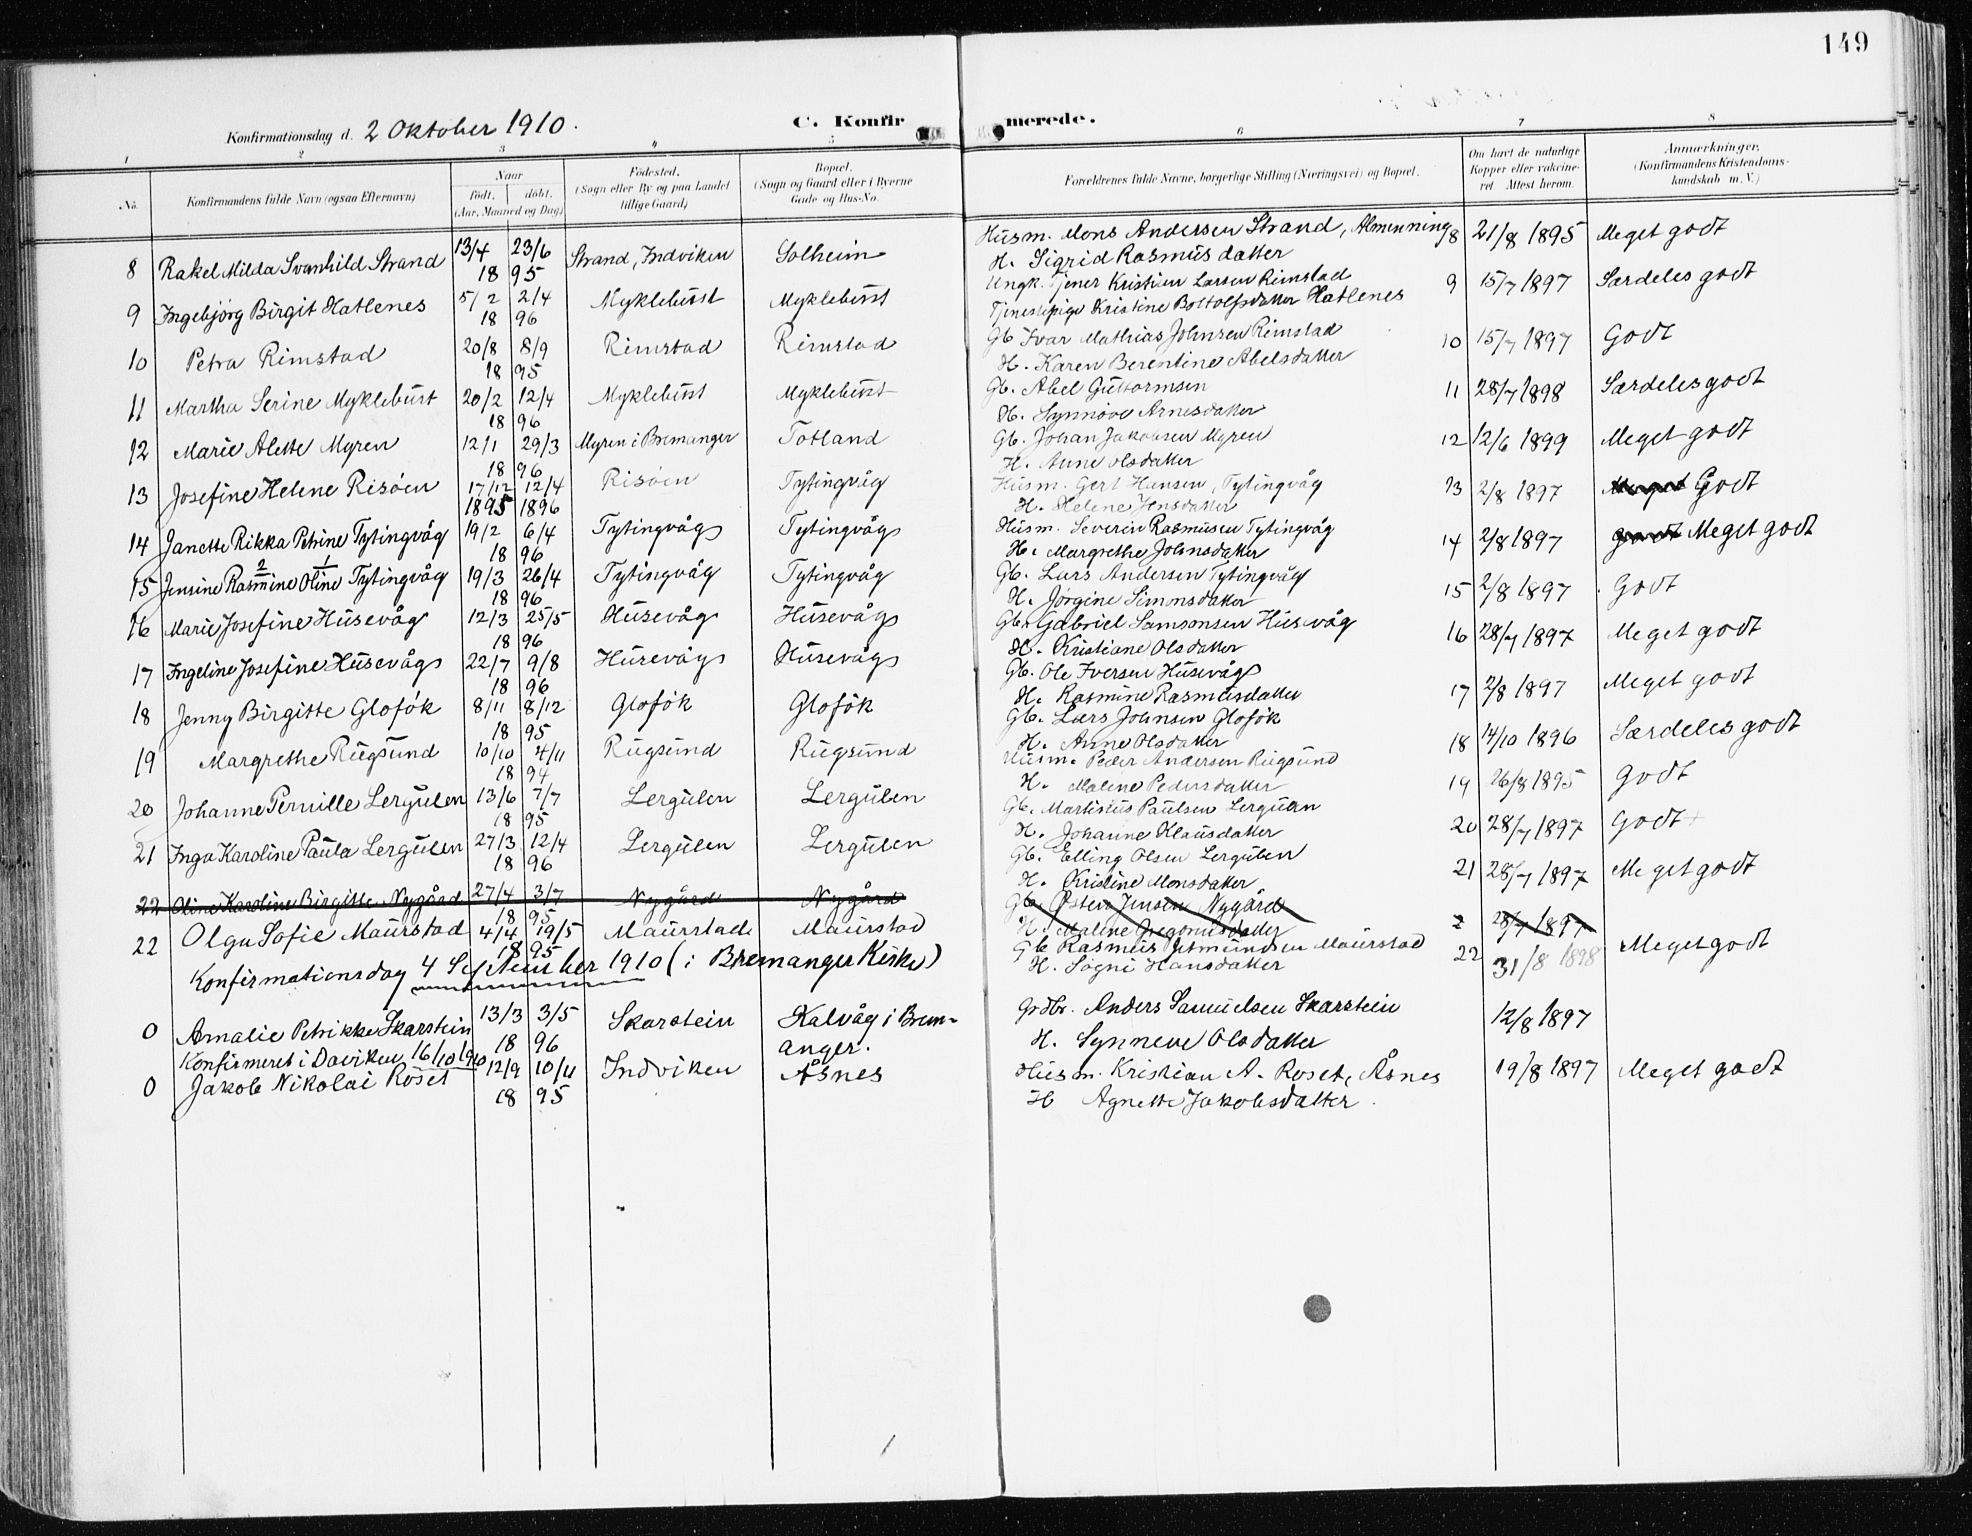 149
Konfirmationsdag d. 2 Oktober 1910.
C. Konfirmerede.
1 2 3 4 5 6 7 8
No. Konfirmandens fulde Navn (ogsaa Efternavn) Naar født. døbt. (Aar, Maaned og Dag) Fødested. (Sogn eller By og paa Landet tillige Gaard) Bopæl. (Sogn og Gaard eller i Byerne Gade og Hus-No. Forældrenes fulde Navne, borgerlige Stilling (Næringsvei) og Bopæl. Om havt de naturlige Kopper eller vakcineret Attest herom. Anmærkninger. (Konfirmandens Kristendomskundskab m. V.)
8 Rakel Milda Svanhild Strand 13/4 23/6 Strand, Indviken Solheim Husm. Mons Andersen Strand, Almenning 8 21/8 1895 Meget godt
18 95 H. Sigrid Rasmusdatter
9 Ingebjørg Birgit Hatlenes 5/2 2/4 Myklebust Myklebust Ungk. Tjener Kristian Larsen Rimstad 9 15/7 1897 Særdeles godt
18 96 Tjenestepige Kristine Bottolfsdatter Hatlenes
10 Petra Rimstad 20/8 8/9 Rimstad Rimstad Gb Ivar Mathias Johnsen Rimstad 10 15/7 1897 Godt
18 95 H. Karen Berentine Abelsdatter
11 Martha Serine Myklebust 20/2 12/4 Myklebust Myklebust Gb. Abel Guttormsen 11 28/7 1898 Særdeles godt
18 96 H. Synnöve Arnesdatter
12 Marie Alette Myren 12/1 29/3 Myren i Bremanger Totland Gb. Johan Jakobsen Myren 12 12/6 1899 Meget godt
18 96 H. Anne Olsdatter
13 Josefine Helene Risöen 17/12 12/4 Risöen Tytingvåg Husm. Gert Hansen, Tytingvåg 13 2/8 1897 Meget Godt
1895 1896 H. Helene Jensdatter
14 Janette Rikka Petrine Tytingvåg 19/2 6/4 Tytingvåg Tytingvåg Husm. Severin Rasmusen Tytingvåg 14 2/8 1897 godt Meget godt
18 96 H. Margrethe Johnsdatter
2 1
15 Jensine Rasmine Oline Tytingvåg 19/3 26/4 Tytingvåg Tytingvåg Gb. Lars Andersen Tytingvåg 15 2/8 1897 Godt
18 96 H. Jørgine Simonsdatter
16 Marie Josefine Husevåg 12/3 25/5 Husevåg Husevåg Gb. Gabriel Samsonsen Husevåg 16 28/7 1897 Meget godt
18 96 H. Kristiane Olsdatter
17 Ingeline Josefine Husevåg 22/7 9/8 Husevåg Husevåg Gb. Ole Iversen Husevåg 17 2/8 1897 Meget godt
18 96 H. Rasmine Rasmusdatter
18 Jenny Birgitte Glofök 8/11 8/12 Glofök Glofök Gb. Lars Johnsen Glofök 18 14/10 1896 Særdeles godt
18 95 H. Anne Olsdatter
19 Margrethe Rugsund 10/10 4/11 Rugsund Rugsund Husm. Peder Andersen Rugsund 19 26/8 1895 Godt
18 94 H. Maline Pedersdatter
20 Johanne Pernille Lergulen 13/6 7/7 Lergulen Lergulen Gb. Martinus Paulsen Lergulen 20 28/7 1897 Godt
18 95 H. Johanne Klausdatter
21 Inga Karoline Paula Lergulen 27/3 12/4 Lergulen Lergulen Gb. Elling Olsen Lergulen 21 28/7 1897 Meget godt
18 96 H. Kristine Monsdatter
22 Oline Karoline Birgitte Nygård 27/4 3/7 Nygård Nygård Gb. Østen Jensen Nygård 28/7 1897
18 95 H. Maline Gregoriusdatter
22 Olga Sofie Maurstad 4/4 19/5 Maurstad Maurstad Gb Rasmus Maurstad 22 31/8 1898 Meget godt
18 95 H. Søgni Hansdatter
Konfirmationsdag 4 September 1910 (i Bremanger Kirke)
0 Amalie Petrikke Skarstein 13/3 3/5 Skarstein Kalvåg i Bremanger. Grdbr. Anders Samuelsen Skarstein 12/8 1897
18 96 H. Synneve Olsdatter
Konfirmeret i Daviken 16/10 1910
0 Jakob Nikolai Roset 12/9 10/11 Indviken Åsnes Husm. Kristian A. Roset, Åsnes 19/8 1897 Meget godt
18 95 H Agnette Jakobsdatter.